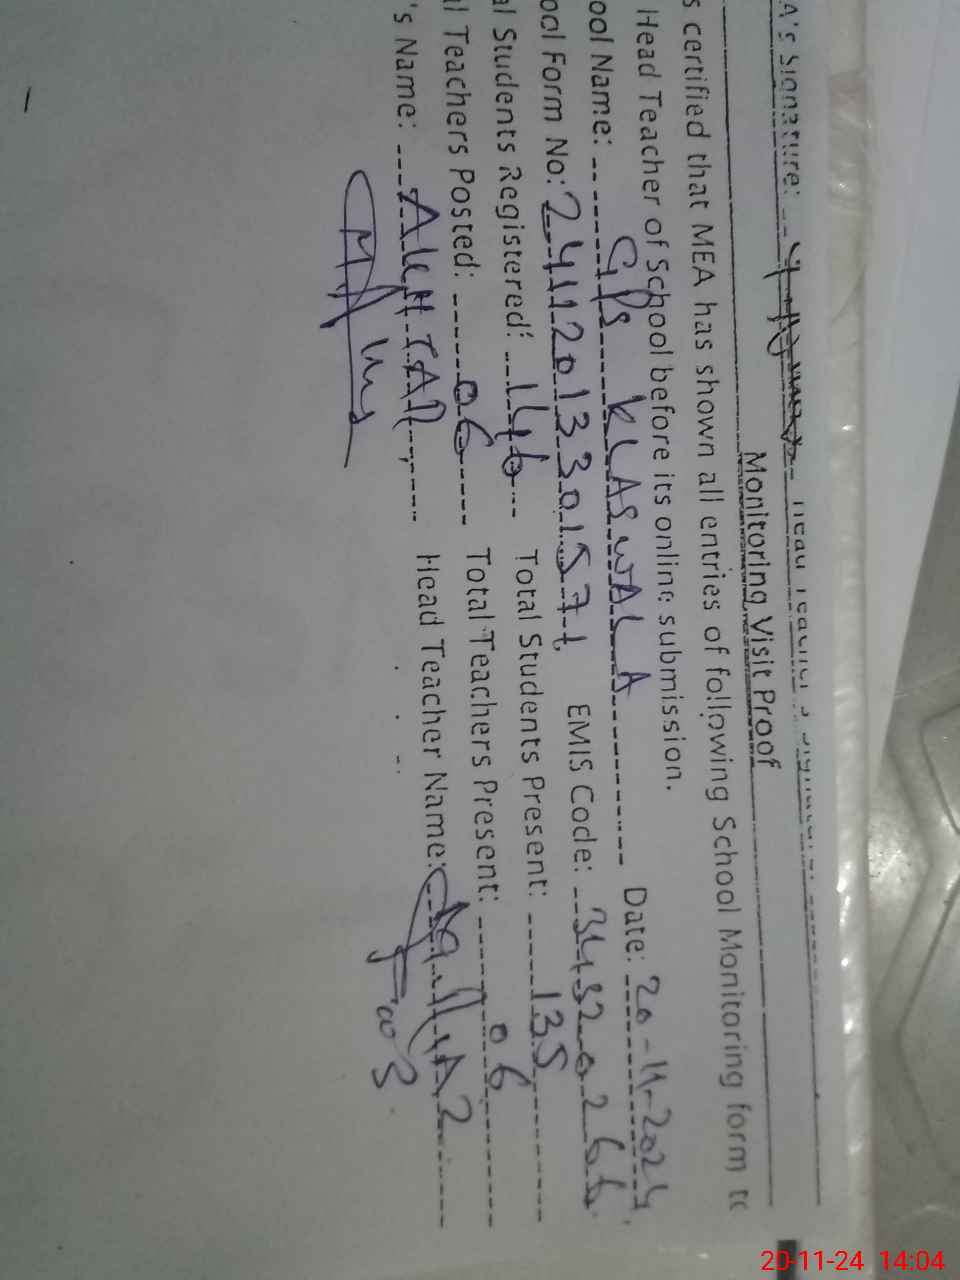 A's Signature:
Monitoring Visit Proof
s certified that MEA has shown all entries of following School Monitoring form to
Head Teacher of School before its online submission.
ool Name: GPS KLASWALA Date: 20-11-2024
ool Form No: EMIS Code:
al Students Registered: 146 Total Students Present: 135
al Teachers Posted: 06 Total Teachers Present: 06
's Name: AKHTAR Head Teacher Name:
20-11-24 14:04